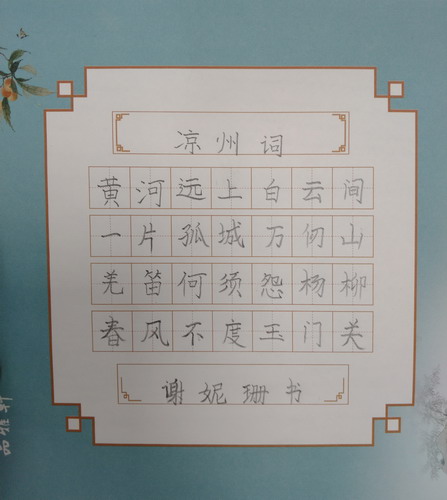 凉州词
黄河远上白云间
一片孤城万仞山
羌笛何须怨杨柳
春风不度玉门关
谢妮珊书